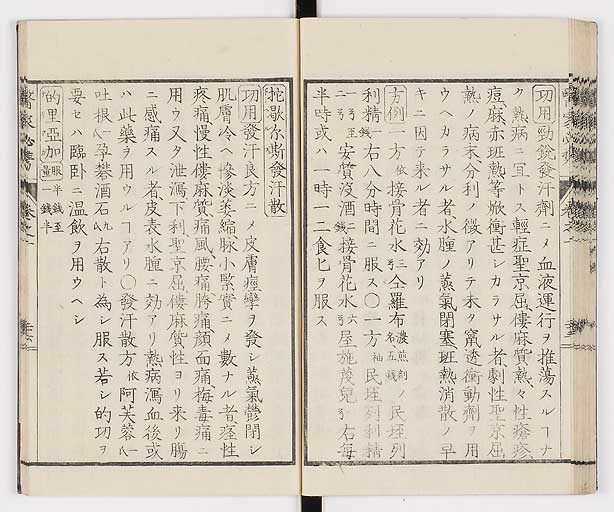 功用勁銳發汗劑ニメ血液運行ヲ推蕩スルヿナ
ク熱病ニ宜トス輕症聖京屈僂麻質熱々性瘡疹
痘麻赤班熱等焮衝甚シカラサル者劇性聖京屈
熱ノ病末分利ノ徴アリテ未タ竄透衝動劑ヲ用
ウヘカラサル者水腫ノ蒸氣閉塞班熱消散ノ早
キニ因テ来ル者ニ効アリ
方例一方依接骨花水三仝羅布濃煎劑名五錢ノ民垤列
利精一錢右八分時間ニ服ス〇一方民垤列利精
一至二安質沒酒二錢接骨花水六屋施蔑兒右每
半時或ハ一時一二食匕ヲ服ス
坨歇尓斯發汗散
功用發汗良方ニメ皮膚痙攣ヲ發シ蒸氣鬱閉シ
肌膚冷ヘ慘淡萎縮脉小緊實ニメ數ナル者痙性
疼痛慢性僂麻質痛風腰痛胯痛顔面痛梅毒痛ニ
用ウ又タ泄瀉下利聖京屈僂麻質性ヨリ来リ腸
ニ感痛スル者皮表水腫ニ効アリ熱病瀉血後或
ハ此藥ヲ用ウルヿアリ〇發汗散方依阿芙蓉一
吐根一孕礬酒石九右散ト為シ服ス若シ的功ヲ
要セハ臨臥ニ温飲ヲ用ウヘシ
的里亞加眼量半錢至一錢半